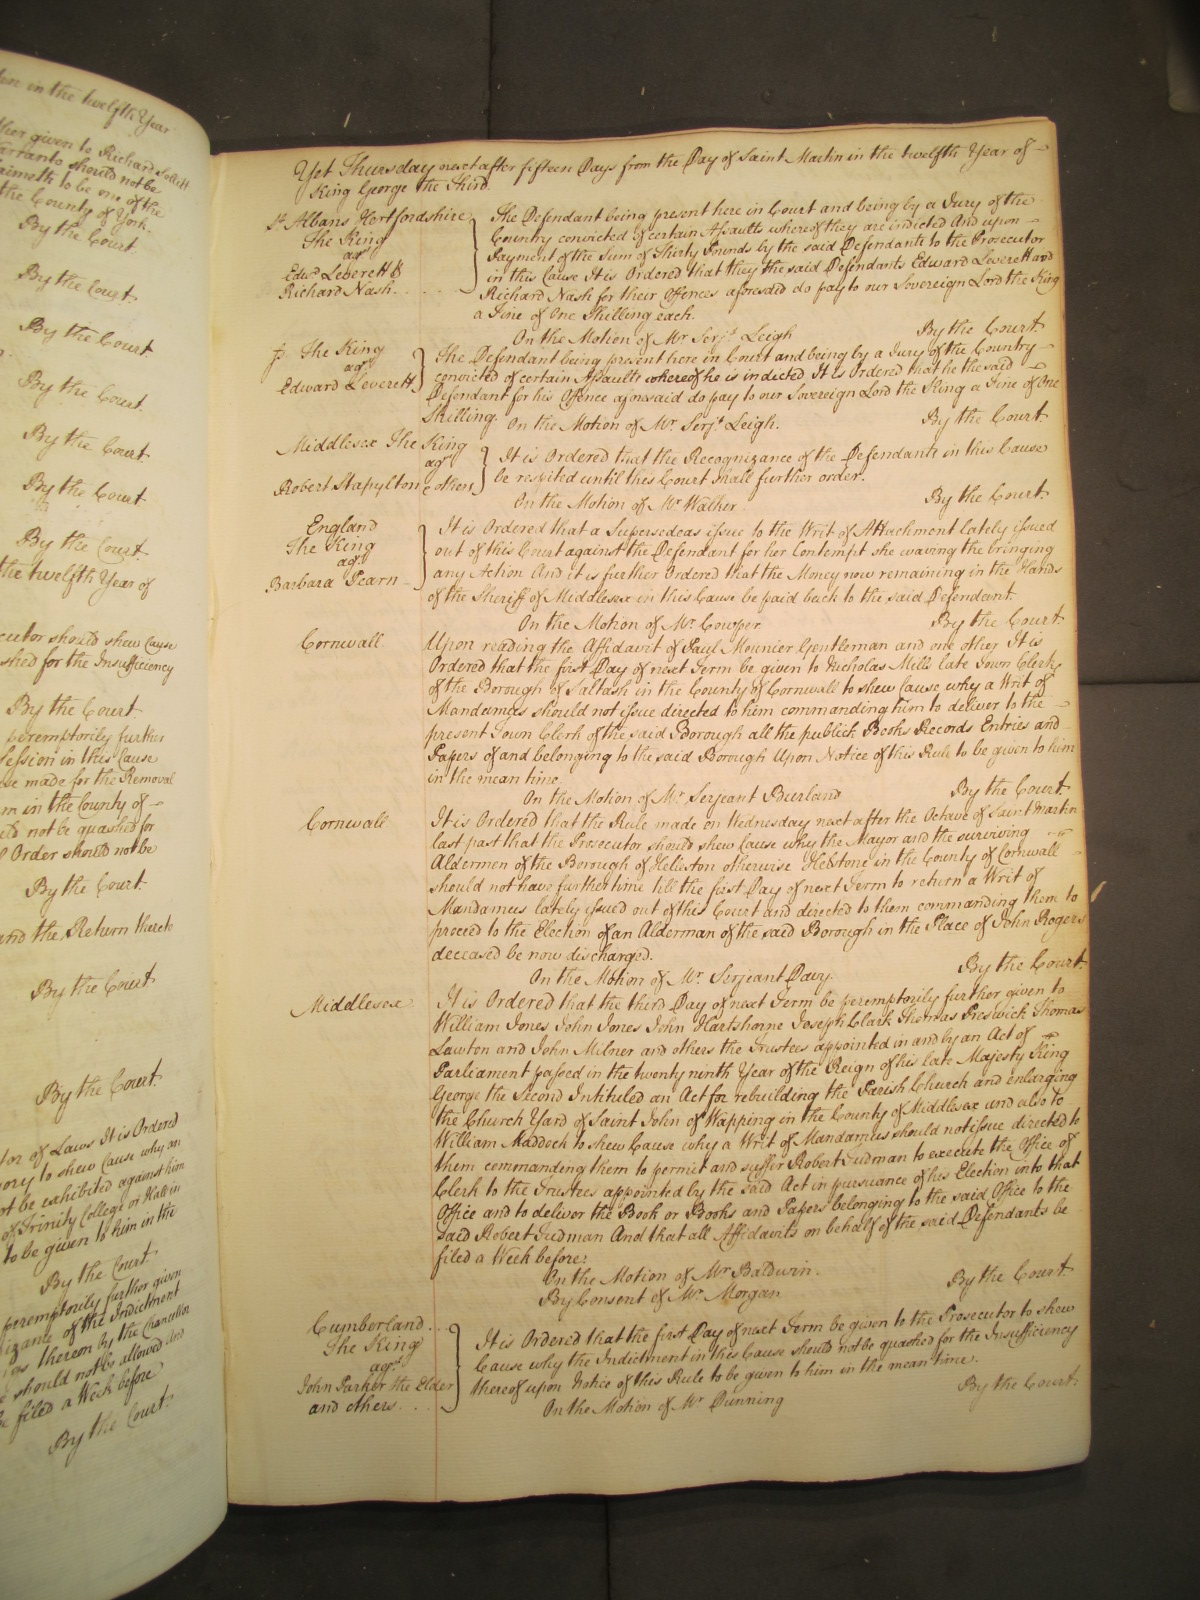 in the twelfth Year
given to Richard
should not be
to be one of the
the County of York.
By the Court
By the Court
By the Court
By the Court.
By the Court.
By the Court
By the Court.
the twelfth Year of
should shew Cause
for the Insufficiency
By the Court.
peremptorily further
Session in this Cause
made for the Removal
in the County of
not be quashed for
Order should not be
By the Court
and the Return thereto
By the Court
By the Court.
of Laws It is Ordered
to shew Cause why an
not be exhibited against him
of Trinity College or Hall in
to be given to him in the
By the Court.
peremptorily further given
of the Indictment
thereon by the Chancellor
should not be allowed And
be filed a Week before
By the Court.
Yet Thursday next after fifteen Days from the Day of Saint Martin in the twelfth Year of
King George the Third.
St. Albans Hertfordshire
The King
agt
Edwd. Leverett &
Richard Nash.
The Defendant being present here in Court and being by a Jury of the
Country convicted of certain Assaults whereof they are indicted And upon
Payment of the Sum of Thirty Pounds by the said Defendants to the Prosecutor
in this Cause It is Ordered that they the said Defendants Edward Leverett and
Richard Nash for their Offences aforesaid do pay to our Sovereign Lord the King
a Fine of One Shilling each.
On the Motion of Mr. Serjt. Leigh
By the Court
The King
agt
Edward Leverett
The Defendant being present here in Court and being by a Jury of the Country
convicted of certain Assaults whereof he is indicted It is Ordered that he the said
Defendant for his Offence aforesaid do pay to our Sovereign Lord the King a Fine of One
Shilling.
On the Motion of Mr. Serjt. Leigh.
By the Court.
Middlesex The King
agt
Robert Stapylton & others
It is Ordered that the Recognizance of the Defendants in this Cause
be respited until this Court shall further order.
On the Motion of Mr. Walker
By the Court
England
The King
agt.
Barbara Pearn
It is Ordered that a Supersedeas issue to the Writ of Attachment lately issued
out of this Court against the Defendant for her Contempt she waving the bringing
any Action And it is further Ordered that the Money now remaining in the Hands
of the Sheriff of Middlesex in this Cause be paid back to the said Defendant.
On the Motion of Mr. Cowper
By the Court
Cornwall
Upon reading the Affidavit of Paul Mounier Gentleman and one other It is
Ordered that the first Day of next Term be given to Nicholas Mills late Town Clerk
of the Borough of Saltash in the County of Cornwall to shew Cause why a Writ of
Mandamus should not issue directed to him commanding him to deliver to the
present Town Clerk of the said Borough all the publick Books Records Entries and
Papers of and belonging to the said Borough Upon Notice of this Rule to be given to him
in the mean time.
On the Motion of Mr. Serjeant Burland
By the Court.
Cornwall
It is Ordered that the Rule made on Wednesday next after the Octave of Saint Martin
last past that the Prosecutor should shew Cause why the Mayor and the surviving
Aldermen of the Borough of Helleston otherwise Helstone in the County of Cornwall
should not have further time till the first Day of next Term to return a Writ of
Mandamus lately issued out of this Court and directed to them commanding them to
proceed to the Election of an Alderman of the said Borough in the Place of John Rogers
deceased be now discharged.
On the Motion of Mr. Serjeant Davy.
By the Court.
Middlesex
It is Ordered that the third Day of next Term be peremptorily further given to
William Jones John Jones John Hartshorne Joseph Clark Thomas Preswick Thomas
Lawton and John Milner and others the Trustees appointed in and by an Act of
Parliament passed in the twenty ninth Year of the Reign of his late Majesty King
George the Second Intituled an Act for rebuilding the Parish Church and enlarging
the Church Yard of Saint John of Wapping in the County of Middlesex and also to
William Maddock to shew Cause why a Writ of Mandamus should not issue directed to
them commanding them to permit and suffer Robert Tudman to execute the Office of
Clerk to the Trustees appointed by the said Act in pursuance of his Election into that
Office and to deliver the Book or Books and Papers belonging to the said Office to the
said Robert Tudman And that all Affidavits on behalf of the said Defendants be
filed a Week before.
On the Motion of Mr Baldwin.
By the Court.
By Consent of Mr. Morgan
Cumberland
The King
agt.
John Parker the Elder
and others
It is Ordered that the first Day of next Term be given to the Prosecutor to shew
Cause why the Indictment in this Cause should not be quashed for the Insufficiency
thereof upon Notice of this Rule to be given to him in the mean time.
On the Motion of Mr Dunning
By the Court.